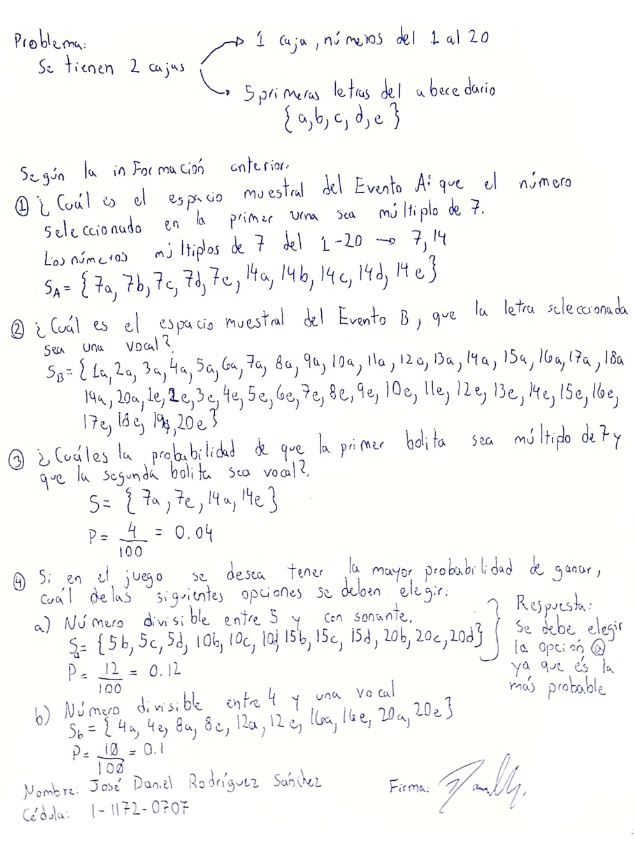 Problema:
Se tienen 2 cajas
1 caja, números del 1 al 20
5 primeras letras del abecedario
{a,b,c,d,e}
Según la información anterior.
① ¿Cuál es el espacio muestral del Evento A: que el número
seleccionado en la primer urna sea múltiplo de 7.
Los números múltiplos de 7 del 1-20 → 7,14
SA = {7a, 7b, 7c, 7d, 7e, 14a, 14b, 14c, 14d, 14e}
② ¿Cuál es el espacio muestral del Evento B, que la letra seleccionada
sea una vocal?.
SB = {1a, 2a, 3a, 4a, 5a, 6a, 7a, 8a, 9a, 10a, 11a, 12a, 13a, 14a, 15a, 16a, 17a, 18a
19a, 20a, 1e, 2e, 3e, 4e, 5e, 6e, 7e, 8e, 9e, 10e, 11e, 12e, 13e, 14e, 15e, 16e,
17e, 18e, 19e, 20e}
③ ¿Cuál es la probabilidad de que la primer bolita sea múltiplo de 7 y
que la segunda bolita sea vocal?.
S = {7a, 7e, 14a, 14e}
P = 4/100 = 0.04
④ Si en el juego se desea tener la mayor probabilidad de ganar,
cuál de las siguientes opciones se deben elegir:
a) Número divisible entre 5 y consonante.
Sa = {5b, 5c, 5d, 10b, 10c, 10d, 15b, 15c, 15d, 20b, 20c, 20d}
P = 12/100 = 0.12
Respuesta:
Se debe elegir
la opción ⓐ
ya que es la
más probable
b) Número divisible entre 4 y una vocal
Sb = {4a, 4e, 8a, 8e, 12a, 12e, 16a, 16e, 20a, 20e}
P = 10/100 = 0.1
Nombre: José Daniel Rodríguez Sánchez
Firma:
Cédula: 1-1172-0707